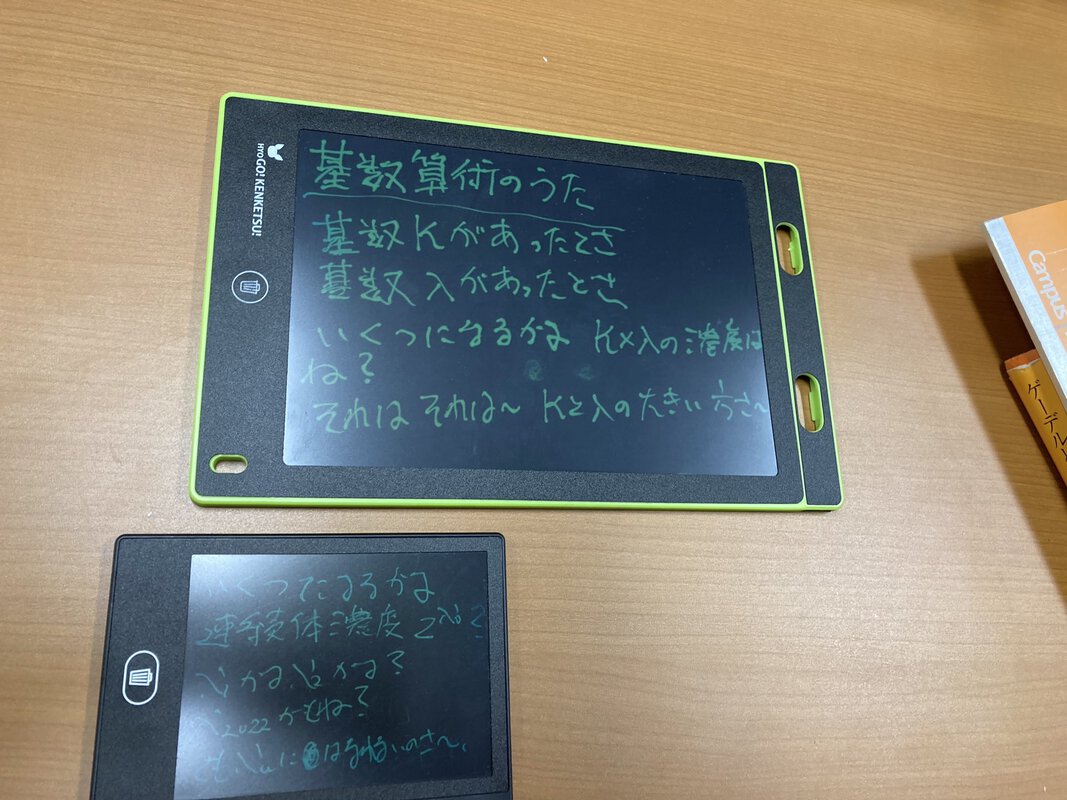 HYOGO! KENKETSU!
基数算術のうた
基数κがあったとさ
基数λがあったとさ
いくつになるかな κ×λの濃度は
ね?
それはそれは〜 κとλの大きい方さ〜
いくつになるかな
連続体濃度 2^ℵ₀?
ℵ₁かな ℵ₂かな?
ℵ₂₀₂₂かもね?
でもℵωにはなれないのさ〜
Campus
ゲーデル